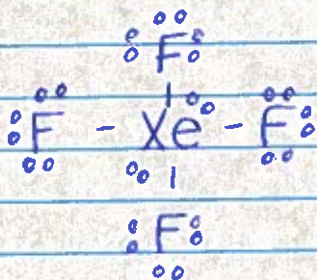 F
F - Xe - F
F